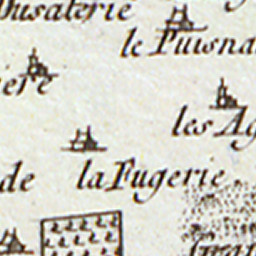 Dusaterie
le Puisna
iere
les Ag
de
la Fugerie
Gran